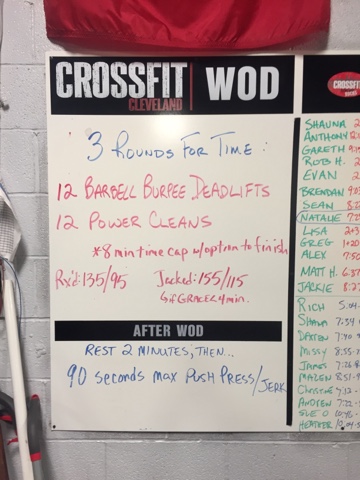 CROSSFIT
CLEVELAND
WOD
3 Rounds For Time:
12 BARBELL BURPEE DEADLIFTS
12 POWER CLEANS
*8 min time cap w/option to finish
Rx'd: 135/95 Jacked: 155/115
AFTER WOD
REST 2 MINUTES, THEN...
90 seconds max PUSH PRESS/JERK
CROSSFIT
SHAUNA 2
ANTHONY
GARETH
ROB H.
EVAN 2
BRENDAN
SEAN
NATALIE
LISA
GREG
ALEX 7:50
MATT H. 6:37
JACKIE 8:27
RICH
SHAWN 7:34
DAXTON 7:40
MISSY 8:55
JAMES
MALEN
CHRISTINE
ANDREW
SUE O
HEATHER